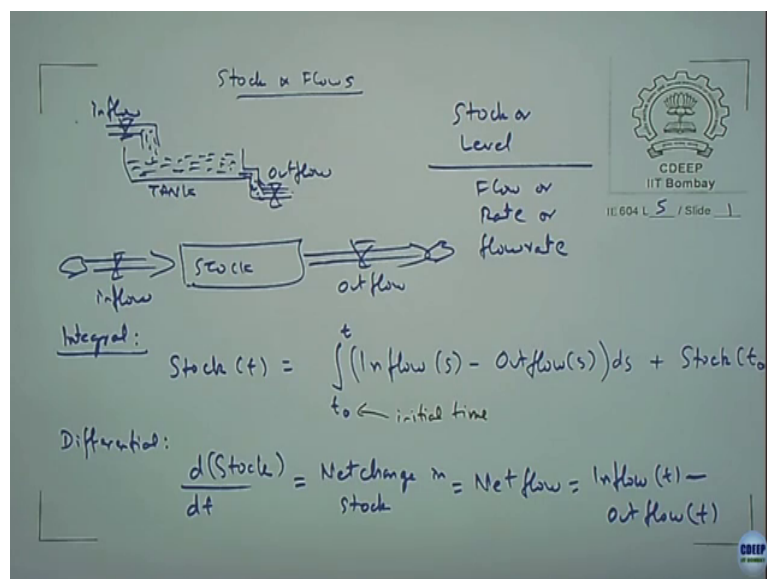 Stock & Flows
Inflow
Outflow
TANK
Stock or
Level
Flow or
Rate or
flowrate
CDEEP
IIT Bombay
IE 604 L 5 / Slide 1
STOCK
inflow
outflow
Integral:
Stock (t) = ∫ t t₀ (Inflow (s) - Outflow(s)) ds + Stock (t₀
← initial time
Differential:
d(Stock)/dt = Net change in stock = Net flow = Inflow (t) - outflow (t)
CDEEP
IIT BOMBAY